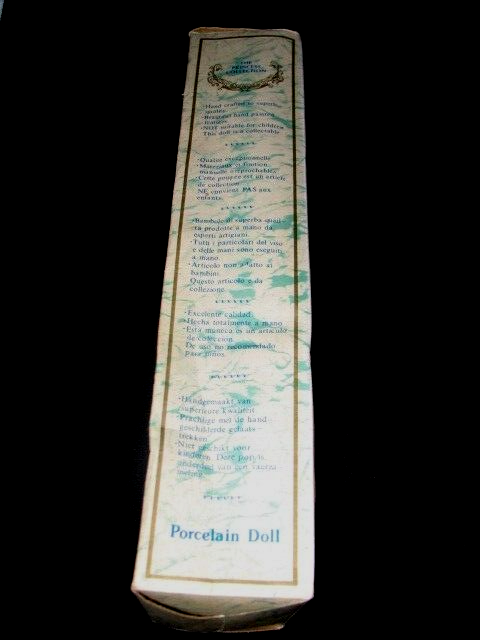 THE
PRINCESS
COLLECTION
·Hand crafted to superb
quality
·Beautiful hand painted
features
·NOT suitable for children
This doll is a collectable
·Qualite exceptionnelle
·Materiaux et finition
manuelle irreprochables
·Cette poupee est un article
de collection
NE convient PAS aux
enfants.
·Bambole di superba quali-
ta prodotte a mano da
esperti artigiani.
·Tutti i particolari del viso
e delle mani sono eseguiti
a mano.
·Articolo non adatto ai
bambini.
Questo articolo e da
collezione.
·Excelente calidad
·Hecha totalmente a mano
·Esta muneca es un articulo
de coleccion
De uso no recomendado
para niños
·Handgemaakt van
superieure kwaliteit
·Prachtige met de hand
geschilderde gelaats-
trekken
·Niet geschikt voor
kinderen. Deze pop is
onderdeel van een
Porcelain Doll